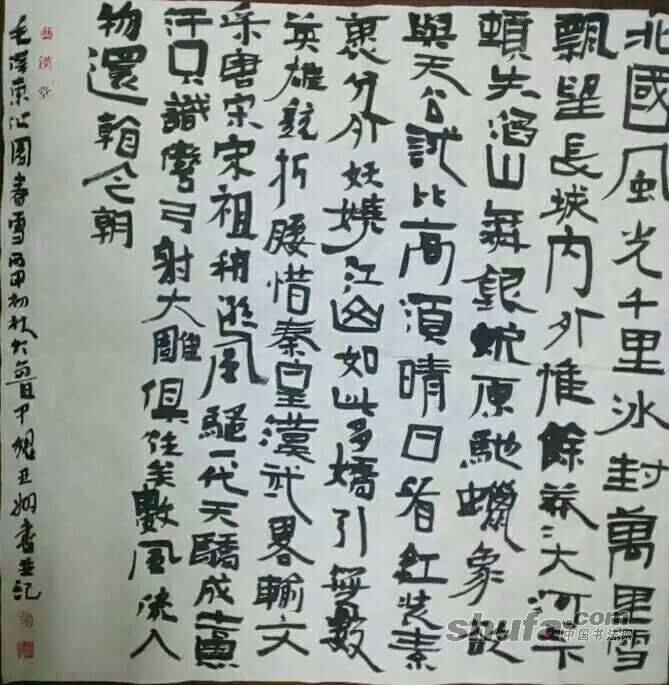 北國風光千里冰封萬里雪
飄望長城內外惟餘莽〻大河下
頓失滔山舞銀蛇原馳蠟象欲
與天公試比高須晴日看紅裝素
裹分外妖嬈江山如此多嬌引無數
英雄競折腰惜秦皇漢武畧輸文
采唐宗宋祖稍遜風騷一代天驕成吉思
汗只識彎弓射大雕俱往矣數風流人
物還看今朝
藝漢堂
毛澤東沁園春雪丙申初秋於魯魏書並記
shufa.com
中国书法网